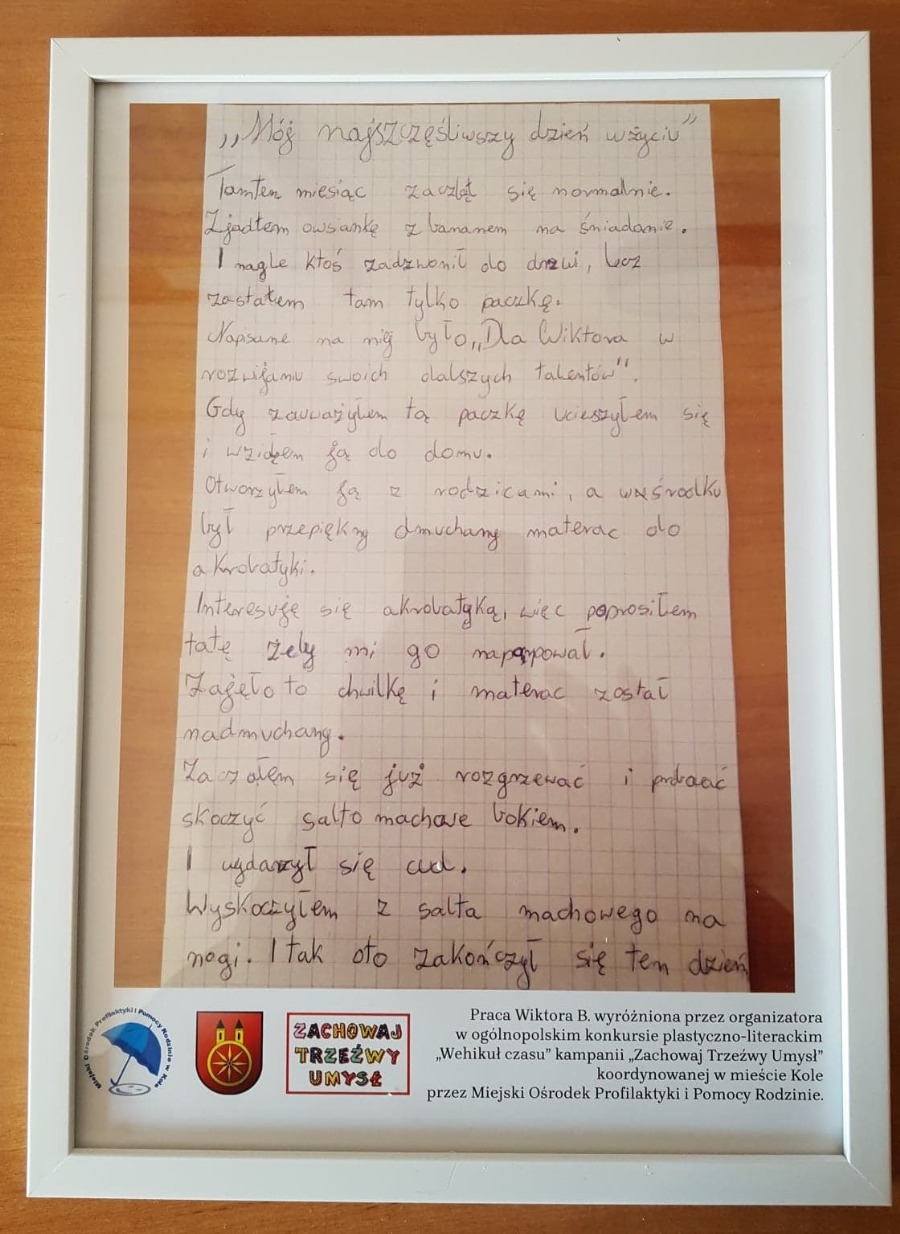 „Mój najszczęśliwszy dzień w życiu"
Tamten miesiąc zaczął się normalnie.
Zjadłem owsiankę z bananem na śniadanie.
I nagle ktoś zadzwonił do drzwi, lecz
zastałem tam tylko paczkę.
Napisane na niej było „Dla Wiktora w
rozwijaniu swoich dalszych talentów".
Gdy zauważyłem tą paczkę ucieszyłem się
i wziąłem ją do domu.
Otworzyłem ją z rodzicami, a w środku
był przepiękny dmuchany materac do
akrobatyki.
Interesuję się akrobatyką, więc poprosiłem
tatę żeby mi go napąpował.
Zajęło to chwilkę i materac został
nadmuchany.
Zaczołem się już rozgrzewać i
skoczyć salto machowe bokiem.
I wydarzył się cud.
Wyskoczyłem z salta machowego na
nogi. I tak oto zakończył się ten dzień
Miejski Ośrodek Profilaktyki i Pomocy Rodzinie w Kole
ZACHOWAJ
TRZEŹWY
UMYSŁ
Praca Wiktora B. wyróżniona przez organizatora
w ogólnopolskim konkursie plastyczno-literackim
„Wehikuł czasu" kampanii „Zachowaj Trzeźwy Umysł"
koordynowanej w mieście Kole
przez Miejski Ośrodek Profilaktyki i Pomocy Rodzinie.